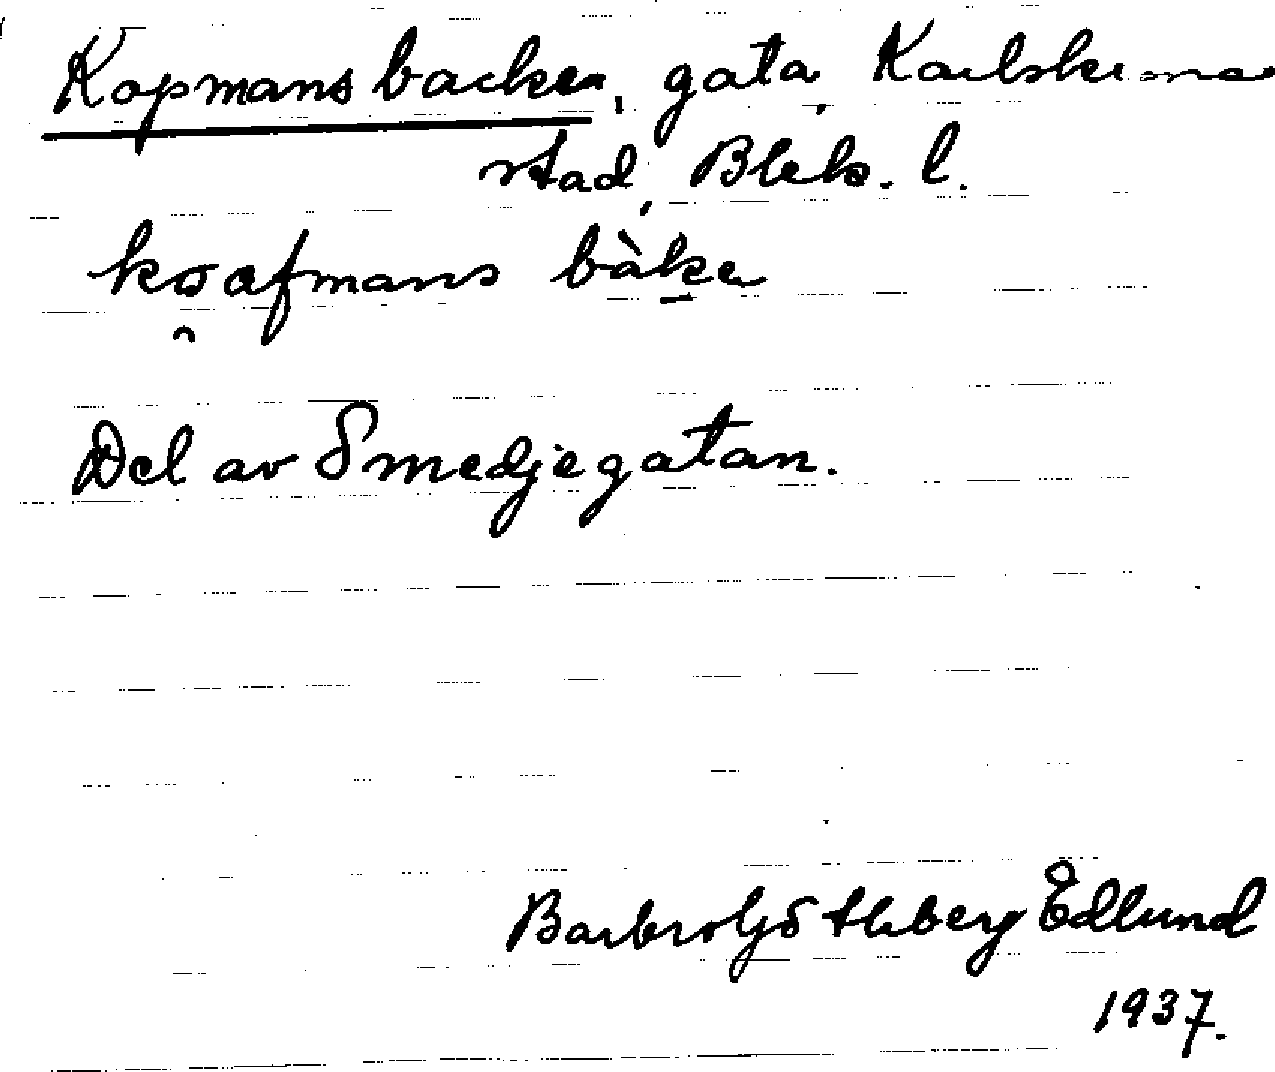 Kopmansbacken, gata, Karlskrona
stad, Blek. l.
Del av Smedjegatan.
Barbro Göthberg Edlund
1937.